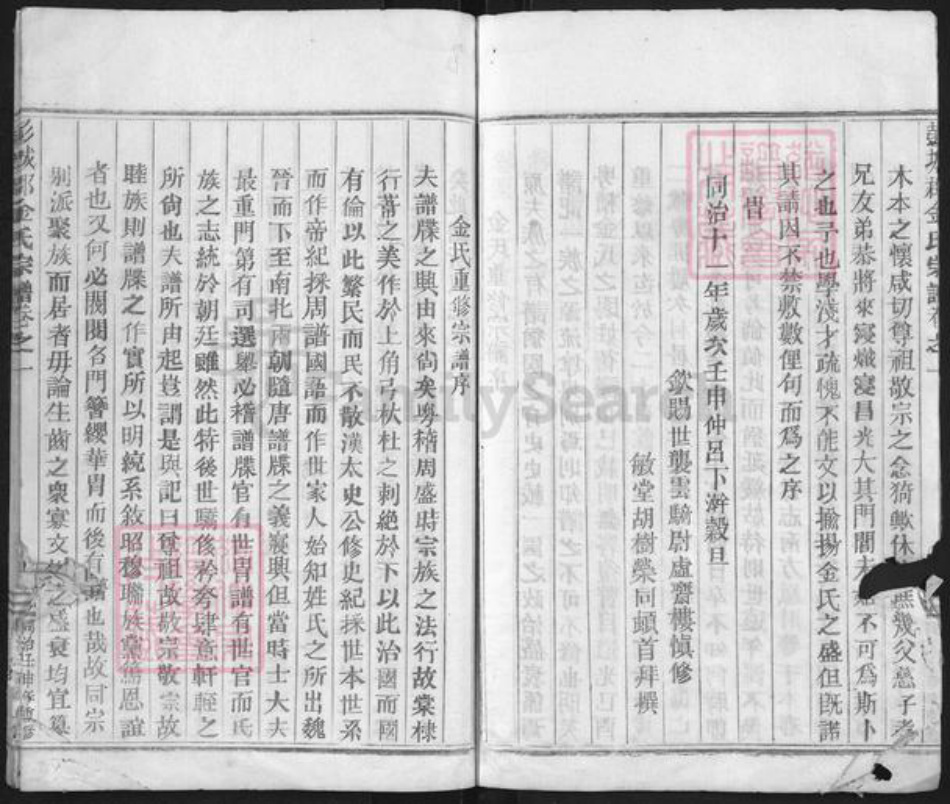 彭城郡金氏宗譜卷之一
木本之懷咸切尊祖敬宗之念猗歟休
幾父慈子孝
兄友弟恭將來寖熾寖昌光大其門閭夫
不可爲斯卜
之也予也學淺才疏愧不能文以揄揚金氏之盛但旣諾
其請因不禁敷數俚句而爲之序
旹
同治十一年歲次壬申仲呂下澣穀旦
欽賜世襲雲騎尉虛齋樓慎修
敏堂胡樹榮同頓首拜撰
金氏重修宗譜序
夫譜牒之興由來尙矣粵稽周盛時宗族之法行故棠棣
行葦之美作於上角弓杕杜之刺絶於下以此治國而國
有倫以此繁民而民不散漢太史公修史紀採世本世系
而作帝紀採周譜國語而作世家人始知姓氏之所出魏
晉而下至南北兩朝隨唐譜牒之義寖興但當時士大夫
最重門第有司選舉必稽譜牒官有世胄譜有世官而氏
族之志統於朝廷雖然此特後世驕後矜夸肆意軒輊之
所尙也夫譜所由起豈謂是與記曰尊祖故敬宗敬宗故
睦族則譜牒之作實所以明統系敘昭穆聯族黨篤恩誼
者也又何必閥閱名門簪纓華胄而後有譜也哉故同宗
別派聚族而居者毋論生齒之衆寡文
之盛衰均宜纂
彭城郡金氏宗譜卷之一
同治壬申
FamilySearch